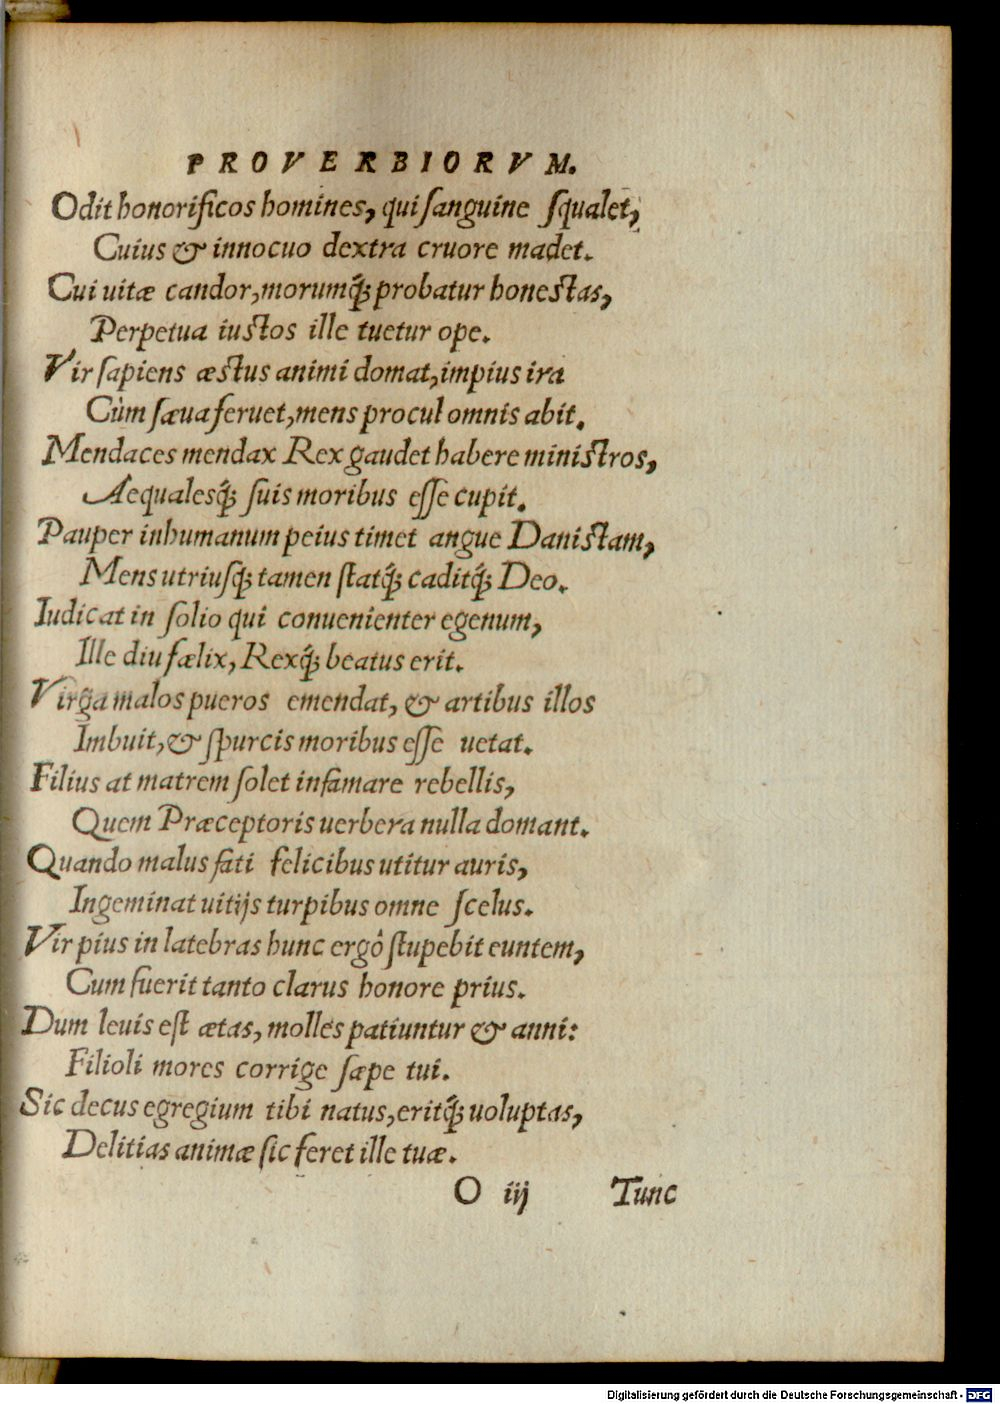 PROVERBIORVM.
Odit honorificos homines, qui sanguine squalet,
Cuius & innocuo dextra cruore madet.
Cui uitæ candor, morumq́; probatur honestas,
Perpetua iustos ille tuetur ope.
Vir sapiens æstus animi domat, impius ira
Cùm sæua feruet, mens procul omnis abit.
Mendaces mendax Rex gaudet habere ministros,
Aequalesq́; suis moribus esse cupit.
Pauper inhumanum peius timet angue Danistam,
Mens utriusq́; tamen statq́; caditq́; Deo.
Iudicat in solio qui conuenienter egenum,
Ille diu fælix, Rexq́; beatus erit.
Virga malos pueros emendat, & artibus illos
Imbuit, & spurcis moribus esse uetat.
Filius at matrem solet infamare rebellis,
Quem Præceptoris uerbera nulla domant.
Quando malus fati felicibus utitur auris,
Ingeminat uitijs turpibus omne scelus.
Vir pius in latebras hunc ergò stupebit euntem,
Cum fuerit tanto clarus honore prius.
Dum leuis est ætas, molles patiuntur & anni:
Filioli mores corrige sæpe tui.
Sic decus egregium tibi natus, eritq́; uoluptas,
Delitias animæ sic feret ille tuæ.
O iij Tunc
Digitalisierung gefördert durch die Deutsche Forschungsgemeinschaft - DFG